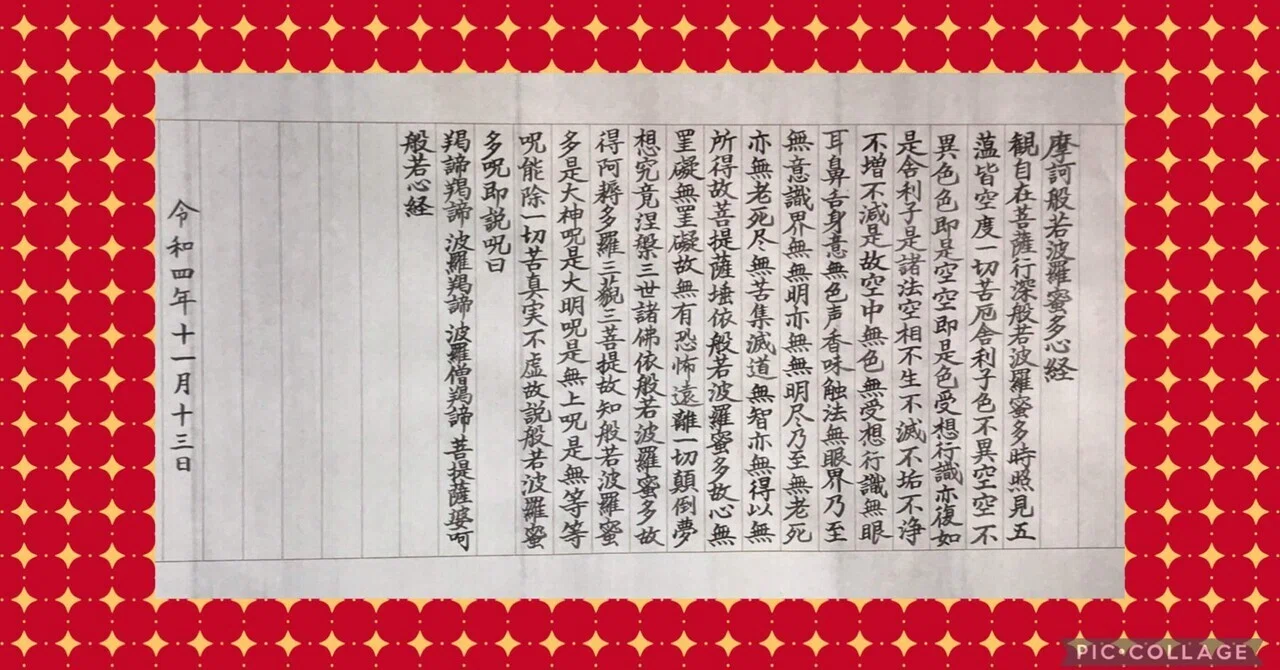 摩訶般若波羅蜜多心経
観自在菩薩行深般若波羅蜜多時照見五
薀皆空度一切苦厄舎利子色不異空空不
異色色即是空空即是色受想行識亦復如
是舎利子是諸法空相不生不滅不垢不浄
不増不減是故空中無色無受想行識無眼
耳鼻舌身意無色声香味触法無眼界乃至
無意識界無無明亦無無明尽乃至無老死
亦無老死尽無苦集滅道無智亦無得以無
所得故菩提薩埵依般若波羅蜜多故心無
罣礙無罣礙故無有恐怖遠離一切顛倒夢
想究竟涅槃三世諸佛依般若波羅蜜多故
得阿耨多羅三藐三菩提故知般若波羅蜜
多是大神呪是大明呪是無上呪是無等等
呪能除一切苦真実不虚故説般若波羅蜜
多呪即説呪曰
羯諦羯諦 波羅羯諦 波羅僧羯諦 菩提薩婆呵
般若心経
令和四年十一月十三日
PIC•COLLAGE